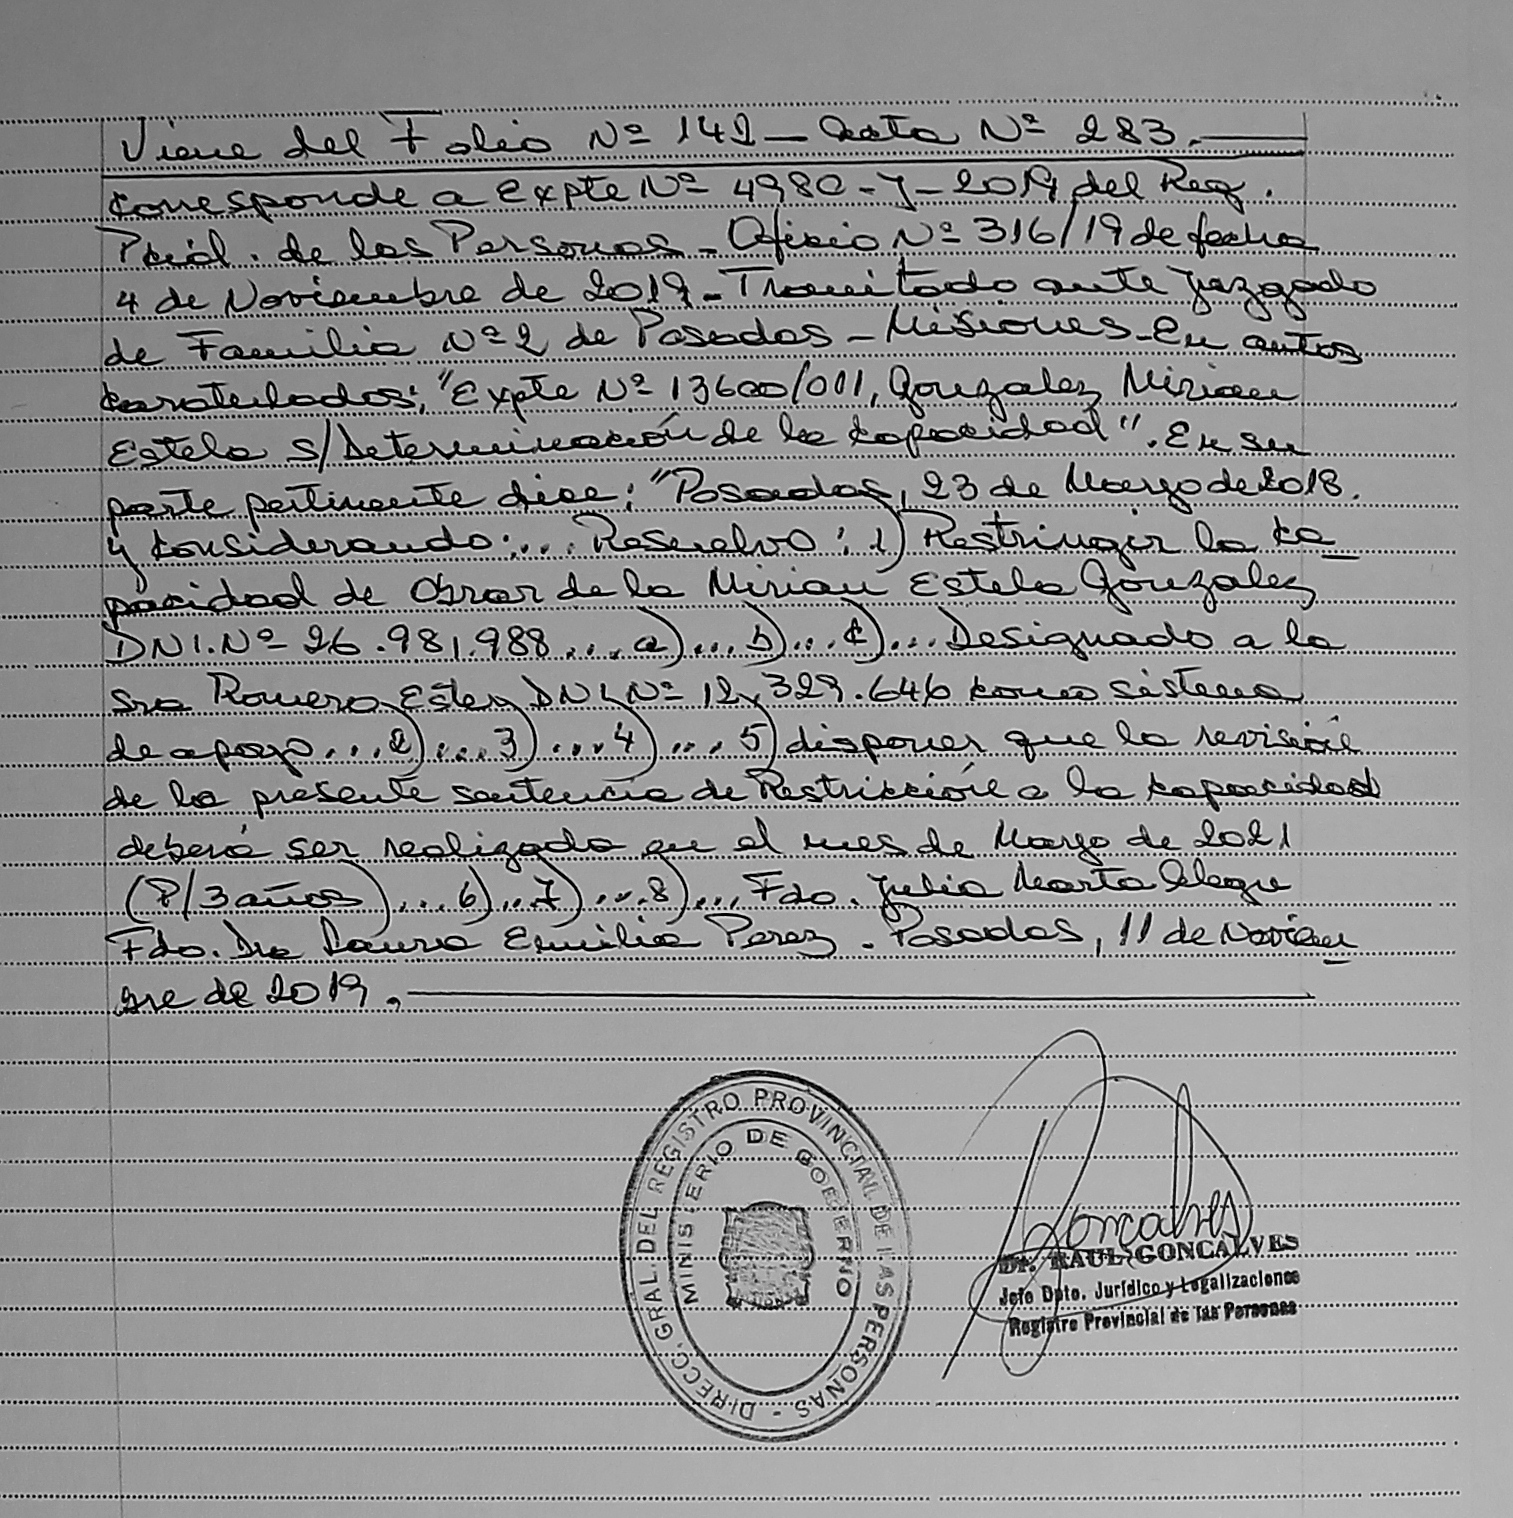 Viene del Folio Nº 142 - Acta Nº 283.
Corresponde a Expte Nº 4980-J-2019 del Reg.
Pcial. de las Personas - Oficio Nº 316/19 de fecha
4 de Noviembre de 2019 - Tramitado ante Juzgado
de Familia Nº 2 de Posadas - Misiones - En autos
Caratulados: "Expte Nº 13600/001, Gonzalez Mirian
Estela S/Determinación de la Capacidad". En su
parte pertinente dice: "Posadas, 23 de Marzo de 2018.
y Considerando:... Resuelvo: 1) Restringir la Ca-
pacidad de Obrar de la Mirian Estela Gonzalez
DNI. Nº 26.981.988 ... a)... b)... c)... Designado a la
sra Romero Ester DNI Nº 12.329.646 como sistema
de apoyo... 2)... 3)... 4)... 5) disponer que la revisión
de la presente sentencia de Restricción a la capacidad
deberá ser realizada en el mes de Marzo de 2021
(P/3 años)... 6)... 7)... 8)... Fdo. Julia Marta Alegre
Fdo. Dra Laura Emilia Perez - Posadas, 11 de Noviem
bre de 2019.
DIRECC. GRAL. DEL REGISTRO PROVINCIAL DE LAS PERSONAS -
MINISTERIO DE GOBIERNO
Goncalves
Dr. RAUL GONCALVES
Jefe Dpto. Jurídico y Legalizaciones
Registro Provincial de las Personas